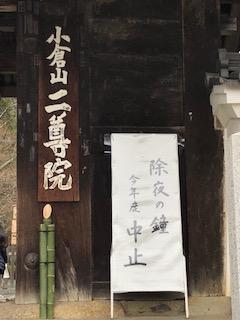 小倉山二尊院
除夜の鐘
今年度
中止